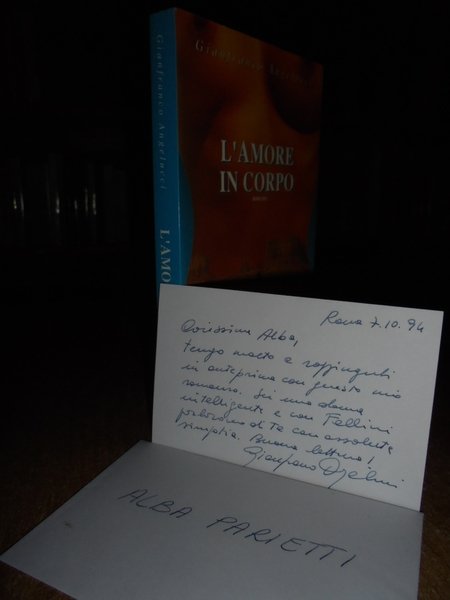 Gianfranco Angelucci
L'AMORE
IN CORPO
Gianfranco Angelucci
L'AMO
Roma 7.10.94
Carissima Alba,
tengo molto a raggiungerti
in anteprima con questo mio
romanzo. Sei una donna
intelligente e con Fellini
parlavamo di Te con assoluta
simpatia. Buona lettura!
Gianfranco Angelucci
ALBA PARIETTI